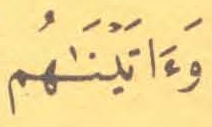 وَءَاتَيْنَٰهُم